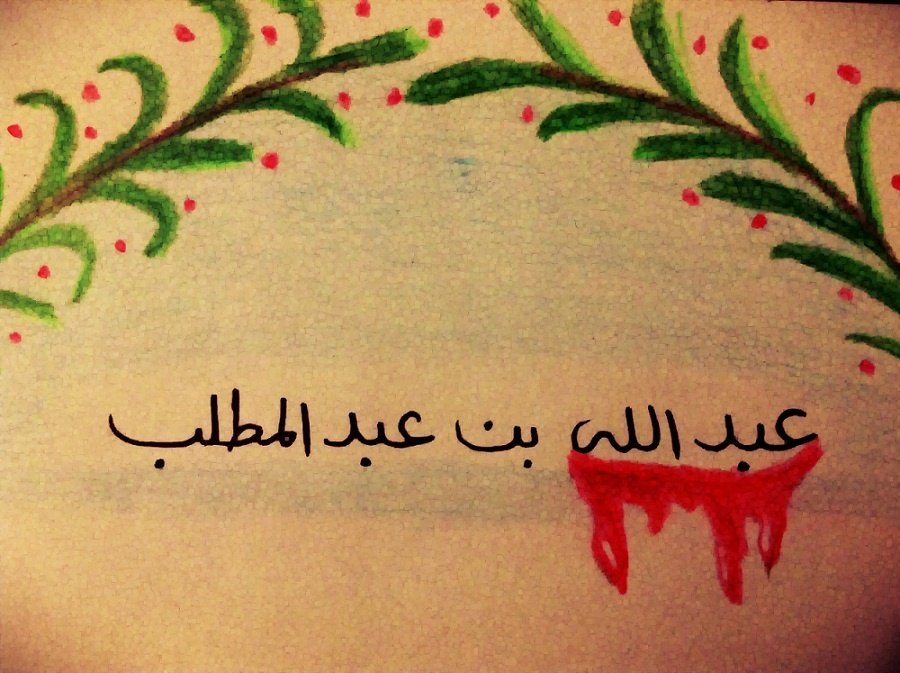 عبد الله بن عبد المطلب